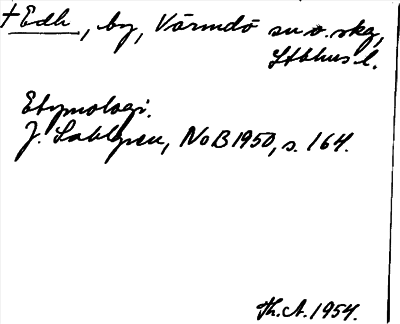 †Edh, by, Värmdö sn o. skg,
Stbhus l.
Etymologi.
J. Sahlgren, NoB 1950, s. 164.
Th. A. 1954.